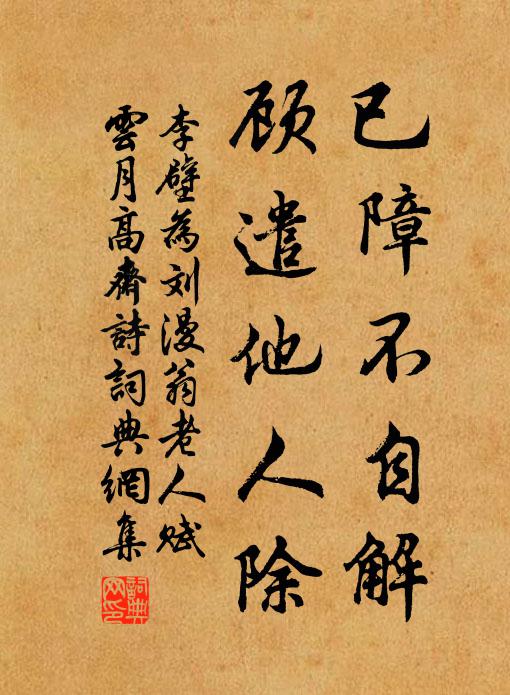 已障不自解
顾遣他人除
李壁为刘漫翁老人赋
雲月高齋詩詞典網集
詞典網印